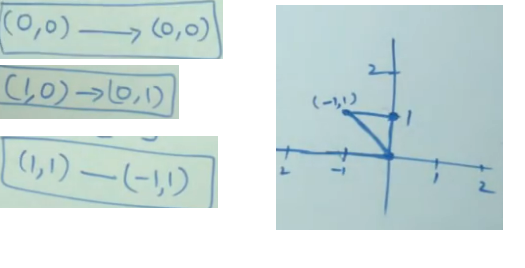 (0,0) ⟶ (0,0)
(1,0) → (0,1)
(1,1) — (-1,1)
2
(-1,1)
1
2 -1 1 2